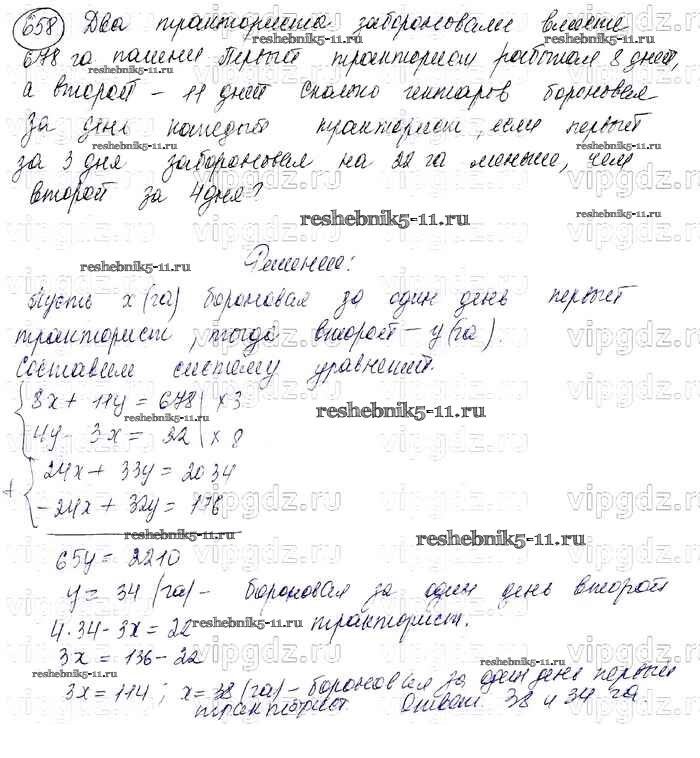 658 Два тракториста забороновали вместе
678 га пашни. Первый тракторист работал 8 дней,
а второй - 11 дней. Сколько гектаров бороновал
за день каждый тракторист, если первый
за 3 дня забороновал на 22 га меньше, чем
второй за 4 дня?
Решение:
Пусть x (га) бороновал за один день первый
тракторист, тогда второй - y (га).
Составим систему уравнений.
8x + 11y = 678 | x 3
4y - 3x = 22 | x 8
+ 24x + 33y = 2034
-24x + 32y = 176
65y = 2210
y = 34 (га) - бороновал за один день второй
4·34-3x = 22 тракторист.
3x = 136-22
3x = 114; x = 38 (га) - бороновал за один день первый
тракторист. Ответ: 38 и 34 га.
reshebnik5-11.ru
vipgdz.ru